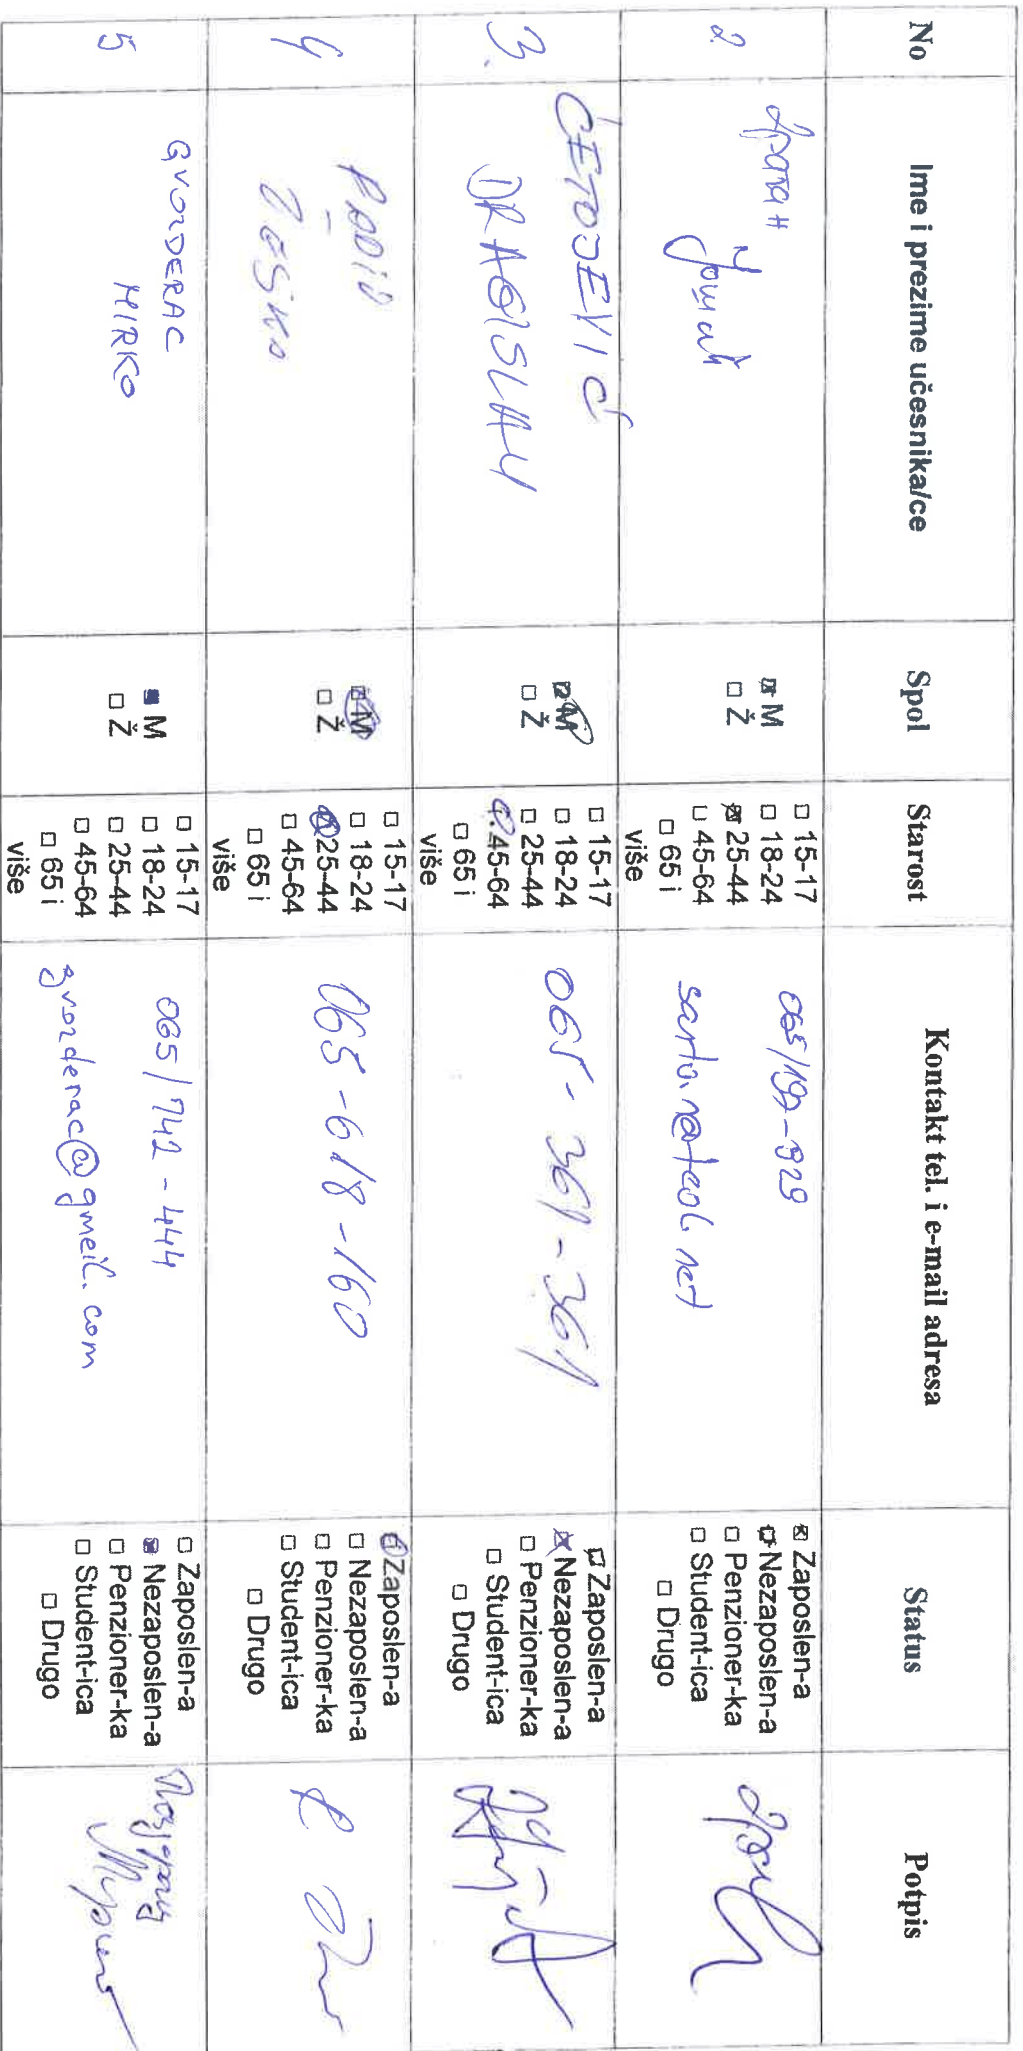 No Ime i prezime učesnika/ce Spol Starost Kontakt tel. i e-mail adresa Status Potpis
2
□ M
□ Ž
□ 15-17
□ 18-24
□ 25-44
□ 45-64
□ 65 i
više
□ Zaposlen-a
□ Nezaposlen-a
□ Penzioner-ka
□ Student-ica
□ Drugo
3.
ĆETOJEVIĆ
DRAGISLAV
□ M
□ Ž
□ 15-17
□ 18-24
□ 25-44
45-64
□ 65 i
više
065-361-361
□ Zaposlen-a
□ Nezaposlen-a
□ Penzioner-ka
□ Student-ica
□ Drugo
4
□ M
□ Ž
□ 15-17
□ 18-24
□ 25-44
□ 45-64
□ 65 i
više
065-618-160
□ Zaposlen-a
□ Nezaposlen-a
□ Penzioner-ka
□ Student-ica
□ Drugo
5
GVOZDERAC
MIRKO
■ M
□ Ž
□ 15-17
□ 18-24
□ 25-44
□ 45-64
□ 65 i
više
065/742-444
gvozderac@gmeil.com
□ Zaposlen-a
■ Nezaposlen-a
□ Penzioner-ka
□ Student-ica
□ Drugo